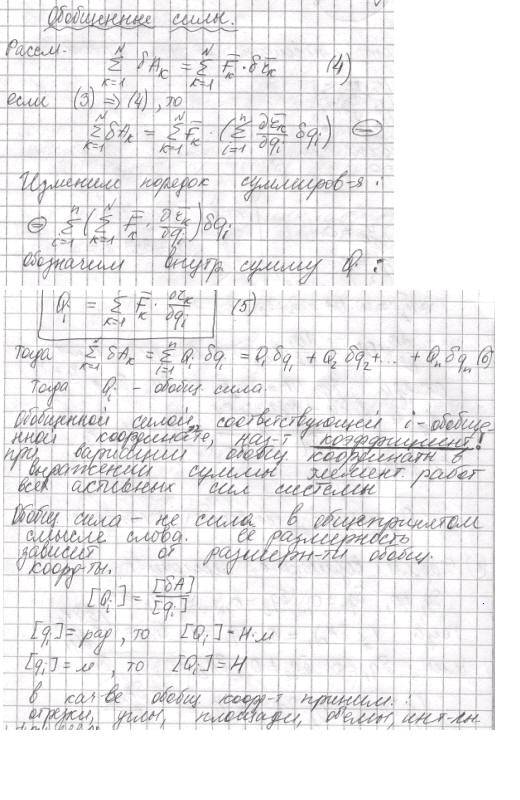 Обобщенные силы.
Рассм. $\sum_{k=1}^{N} \delta A_k = \sum_{k=1}^{N} \bar{F}_k \cdot \delta \bar{r}_k$ (4)
если (3) ⇒ (4), то
$\sum_{k=1}^{N} \delta A_k = \sum_{k=1}^{N} \bar{F}_k \cdot (\sum_{i=1}^{n} \frac{\partial \bar{r}_k}{\partial q_i} \delta q_i)$ ⊜
Изменим порядок суммиров-я :
⊜ $\sum_{i=1}^{n} (\sum_{k=1}^{N} \bar{F}_k \cdot \frac{\partial \bar{r}_k}{\partial q_i}) \delta q_i$
обозначим внутр сумму $Q_i$ :
$Q_i = \sum_{k=1}^{N} \bar{F}_k \cdot \frac{\partial \bar{r}_k}{\partial q_i}$ (5)
тогда $\sum_{k=1}^{N} \delta A_k = \sum_{i=1}^{n} Q_i \delta q_i = Q_1 \delta q_1 + Q_2 \delta q_2 + ... + Q_n \delta q_n$ (6)
тогда $Q_i$ - обобщ. сила
Обобщенной силой, соответствующей i - обобще
нной координате, наз-т коэффициент!
при вариации обобщ координаты в
выражении суммы элемент. работ
всех активных сил системы
Обобщ сила - не сила в общепринятом
смысле слова. Её размерность
зависит от размерн-ти обобщ.
коорд-ты.
$[Q_i] = \frac{[\delta A]}{[q_i]}$
$[q_i]$ = рад, то $[Q_i]$ = Н·м
$[q_i]$ = м, то $[Q_i]$ = Н
в кач-ве обобщ коорд-т приним. :
отрезки, углы, площади, объемы, инт-лы